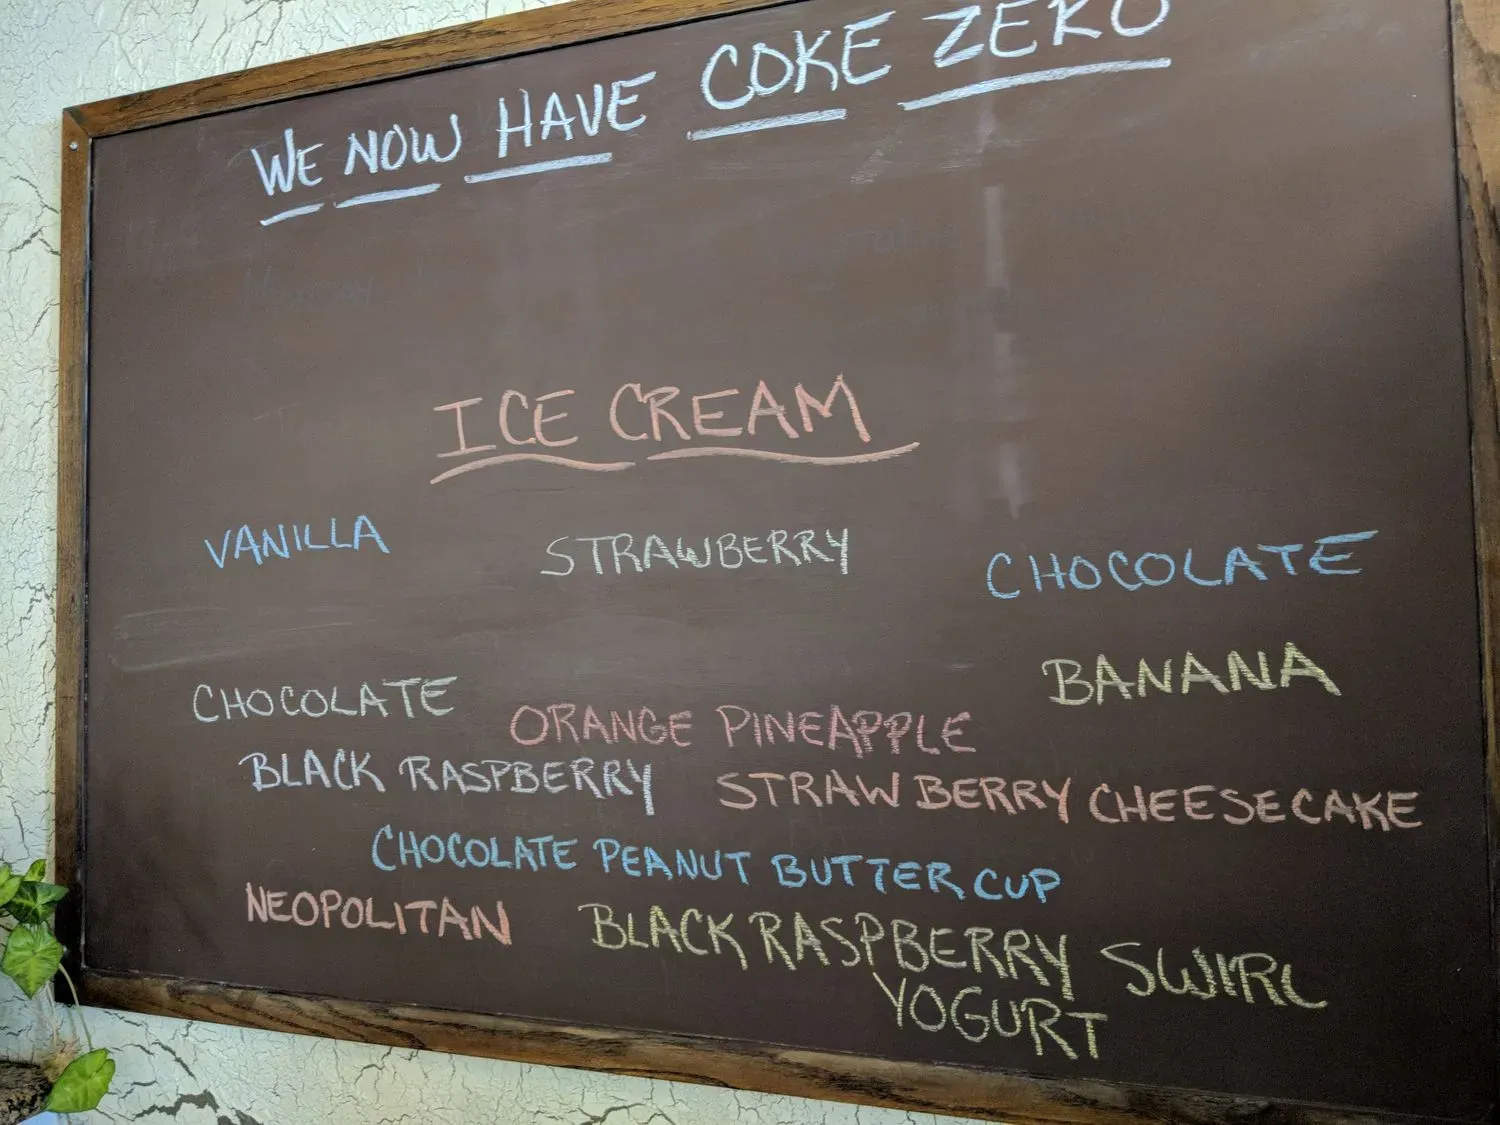 WE NOW HAVE COKE ZERO
ICE CREAM
VANILLA STRAWBERRY CHOCOLATE
CHOCOLATE ORANGE PINEAPPLE BANANA
BLACK RASPBERRY STRAWBERRY CHEESECAKE
CHOCOLATE PEANUT BUTTER CUP
NEOPOLITAN BLACK RASPBERRY SWIRL
YOGURT